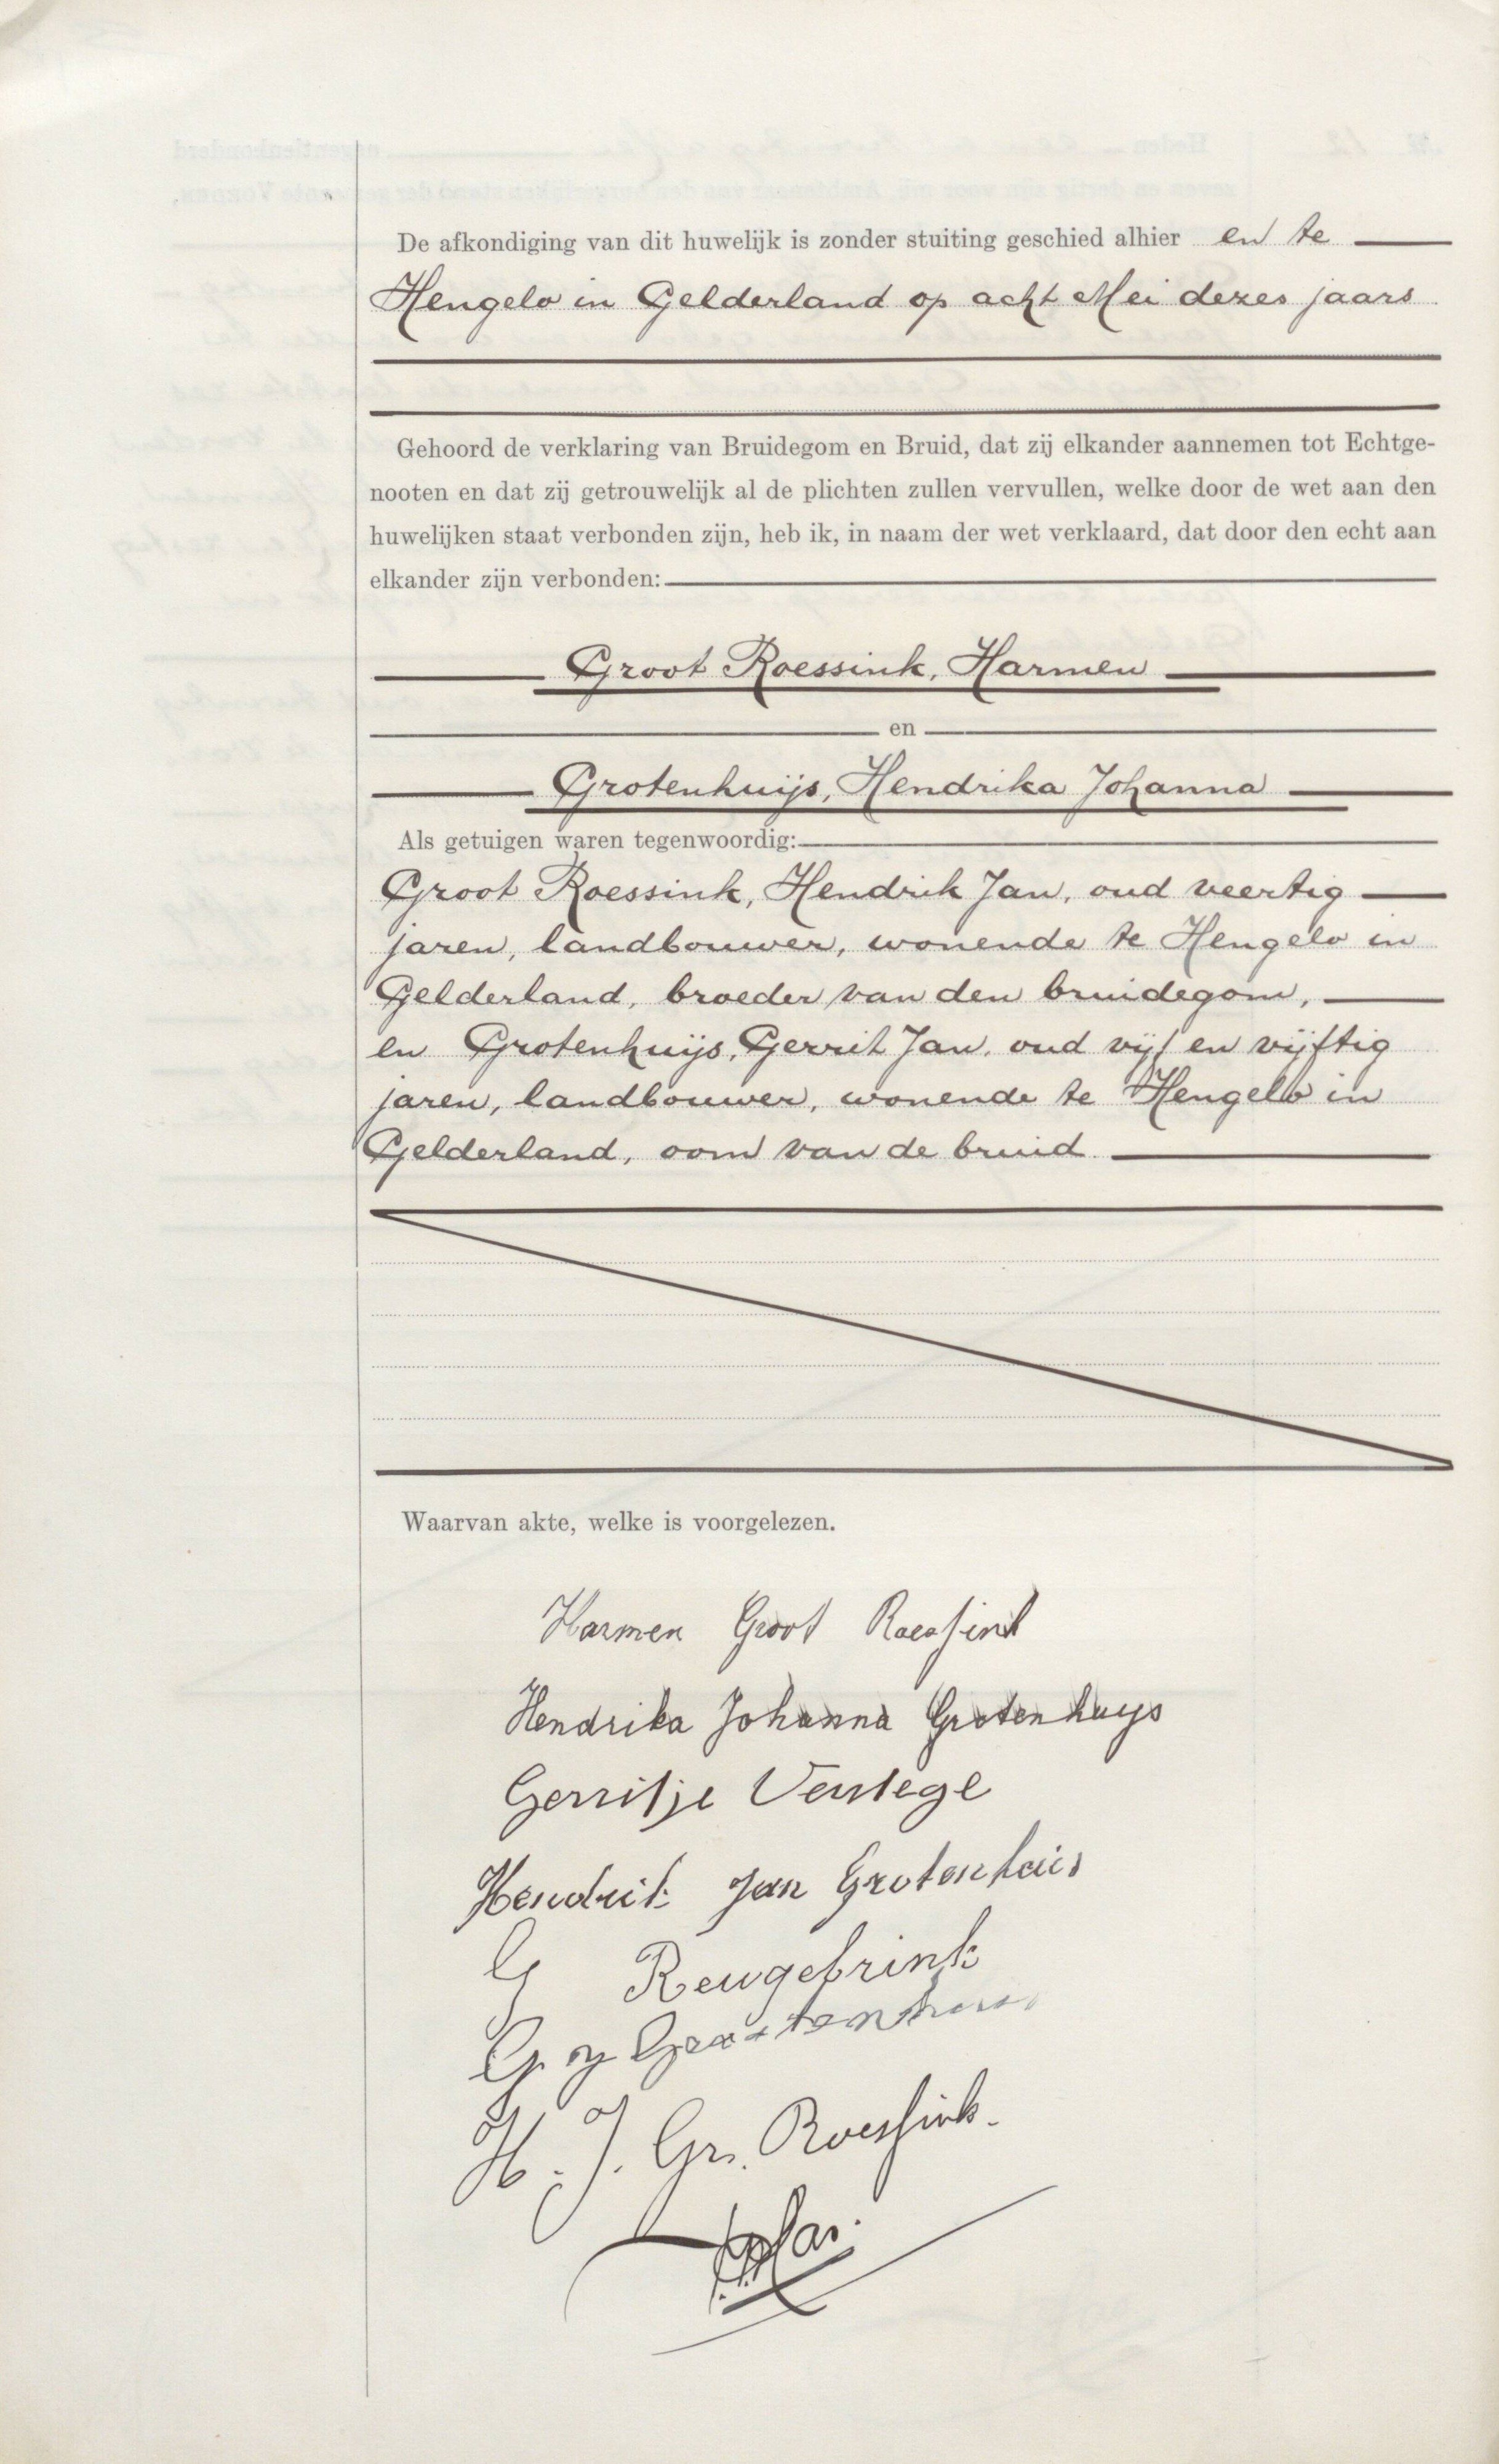 De afkondiging van dit huwelijk is zonder stuiting geschied alhier en te
Hengelo in Gelderland op acht Mei dezes jaars
Gehoord de verklaring van Bruidegom en Bruid, dat zij elkander aannemen tot Echtge-
nooten en dat zij getrouwelijk al de plichten zullen vervullen, welke door de wet aan den
huwelijken staat verbonden zijn, heb ik, in naam der wet verklaard, dat door den echt aan
elkander zijn verbonden:
Groot Roessink, Harmen
en
Grotenhuijs, Hendrika Johanna
Als getuigen waren tegenwoordig:
Groot Roessink, Hendrik Jan, oud veertig
jaren, landbouwer, wonende te Hengelo in
Gelderland, broeder van den bruidegom,
en Grotenhuijs, Gerrit Jan, oud vijf en vijftig
jaren, landbouwer, wonende te Hengelo in
Gelderland, oom van de bruid.
Waarvan akte, welke is voorgelezen.
Harmen Groot Roessink
Hendrika Johanna Grotenhuys
Gerritje Verstege
Hendrik Jan Grotenhuis
G Reugebrink
H. J. Gr. Roessink.